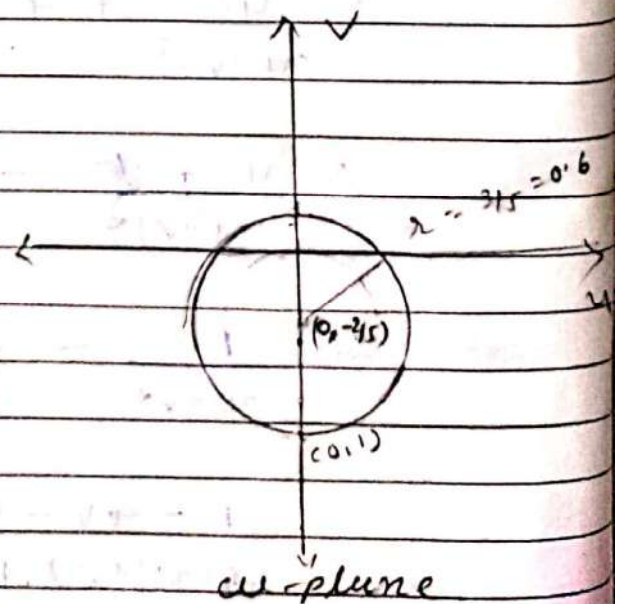 V
r = 3/5 = 0.6
u
(0, -2/5)
(0, 1)
w-plane